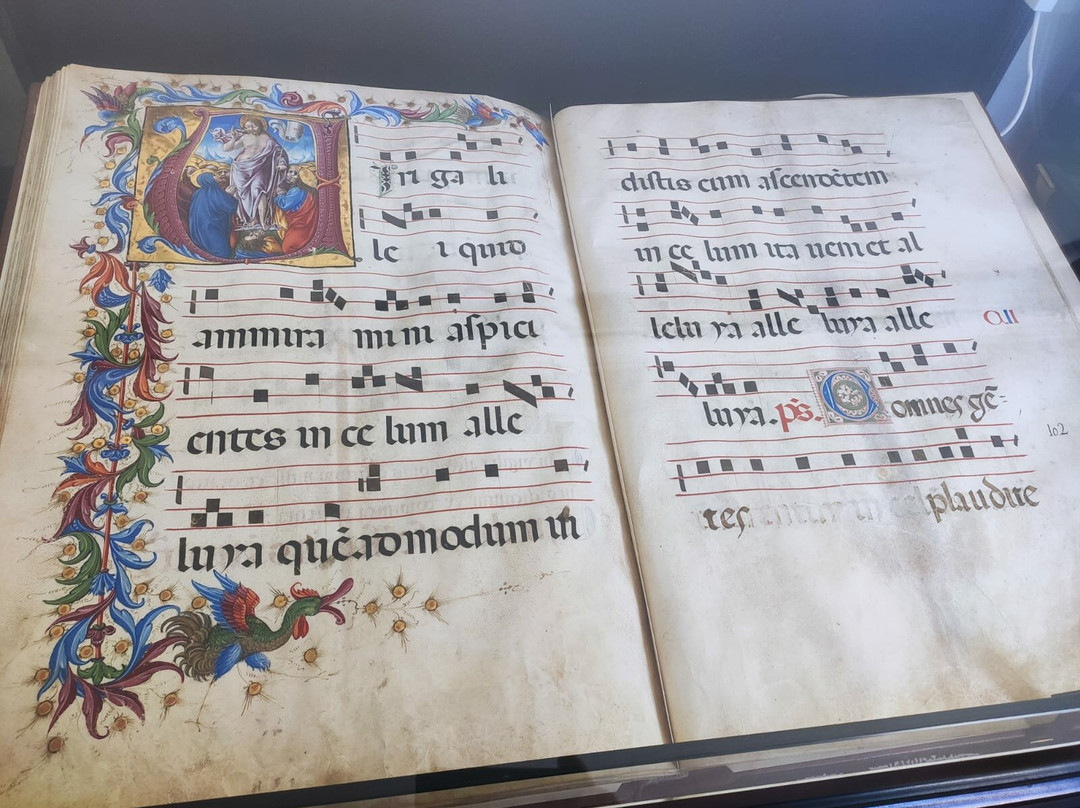 Viri ga li
le i quid
ammira mi ni aspici
entes in ce lum alle
lu ya quēadmodum ui
distis eum ascendētem
in ce lum ita ueniet al
lelu ya alle luya alle
C.II
luya. p̄s. Omnes gē=
102
tes plaudite